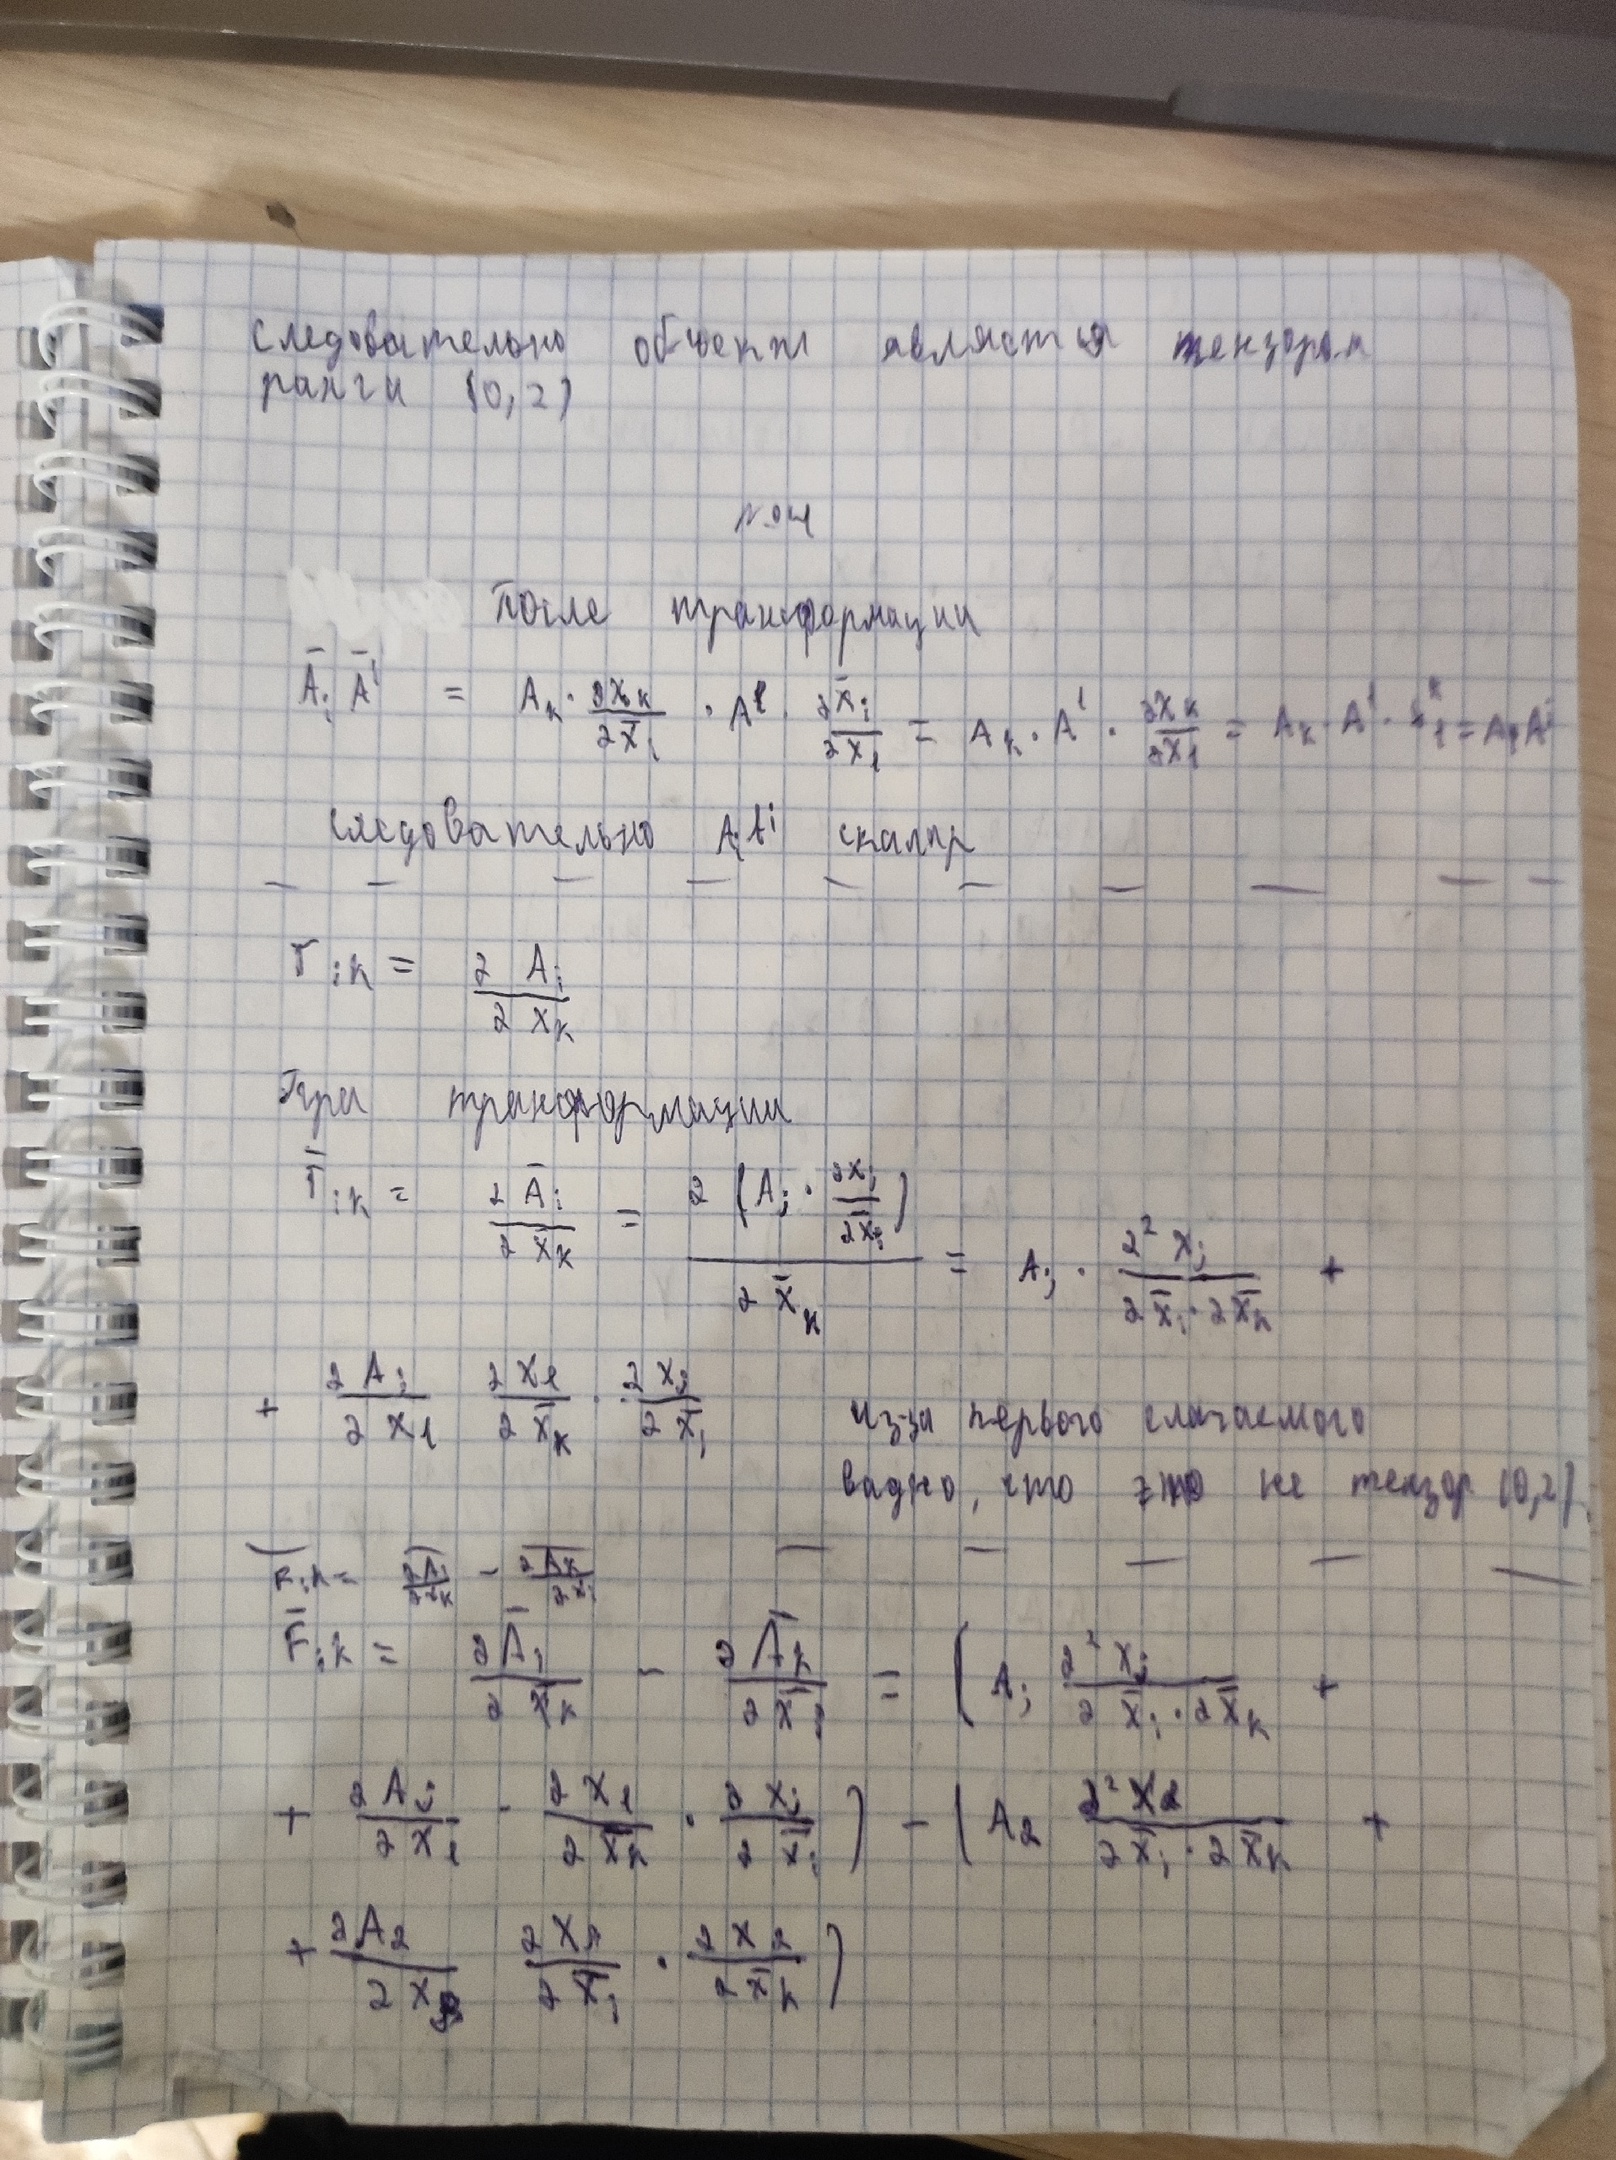 следовательно объект является тензором
ранга (0,2)
№ 4
После трансформации
Ā_i Ā^i = A_k · ∂x_k/∂x̄_i · A^l · ∂x̄_i/∂x_l = A_k · A^l · ∂x_k/∂x_l = A_k · A^l · δ^k_l = A_i A^i
следовательно A_i A^i скаляр
T_ik = ∂A_i/∂x_k
При трансформации
T̄_ik = ∂Ā_i/∂x̄_k = ∂(A_j · ∂x_j/∂x̄_i)/∂x̄_k = A_j · ∂²x_j/∂x̄_i·∂x̄_k +
+ ∂A_j/∂x_l ∂x_l/∂x̄_k · ∂x_j/∂x̄_i из-за первого слагаемого
видно, что это не тензор (0,2).
F_ik = ∂A_i/∂x_k - ∂A_k/∂x_i
F̄_ik = ∂Ā_i/∂x̄_k - ∂Ā_k/∂x̄_i = (A_j ∂²x_j/∂x̄_i·∂x̄_k +
+ ∂A_j/∂x_l · ∂x_l/∂x̄_k · ∂x_j/∂x̄_i) - (A_2 ∂²x_2/∂x̄_i·∂x̄_k +
+ ∂A_2/∂x ∂x/∂x̄_i · ∂x_2/∂x̄_k)